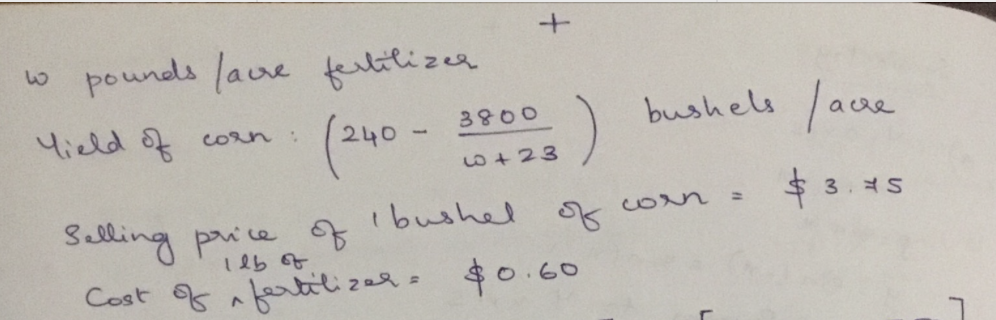 +
w pounds /acre fertilizer
Yield of corn : (240 - 3800/(w+23)) bushels /acre
Selling price of 1 bushel of corn = $3.75
Cost of ^ 1 lb of fertilizer = $0.60
[ ]